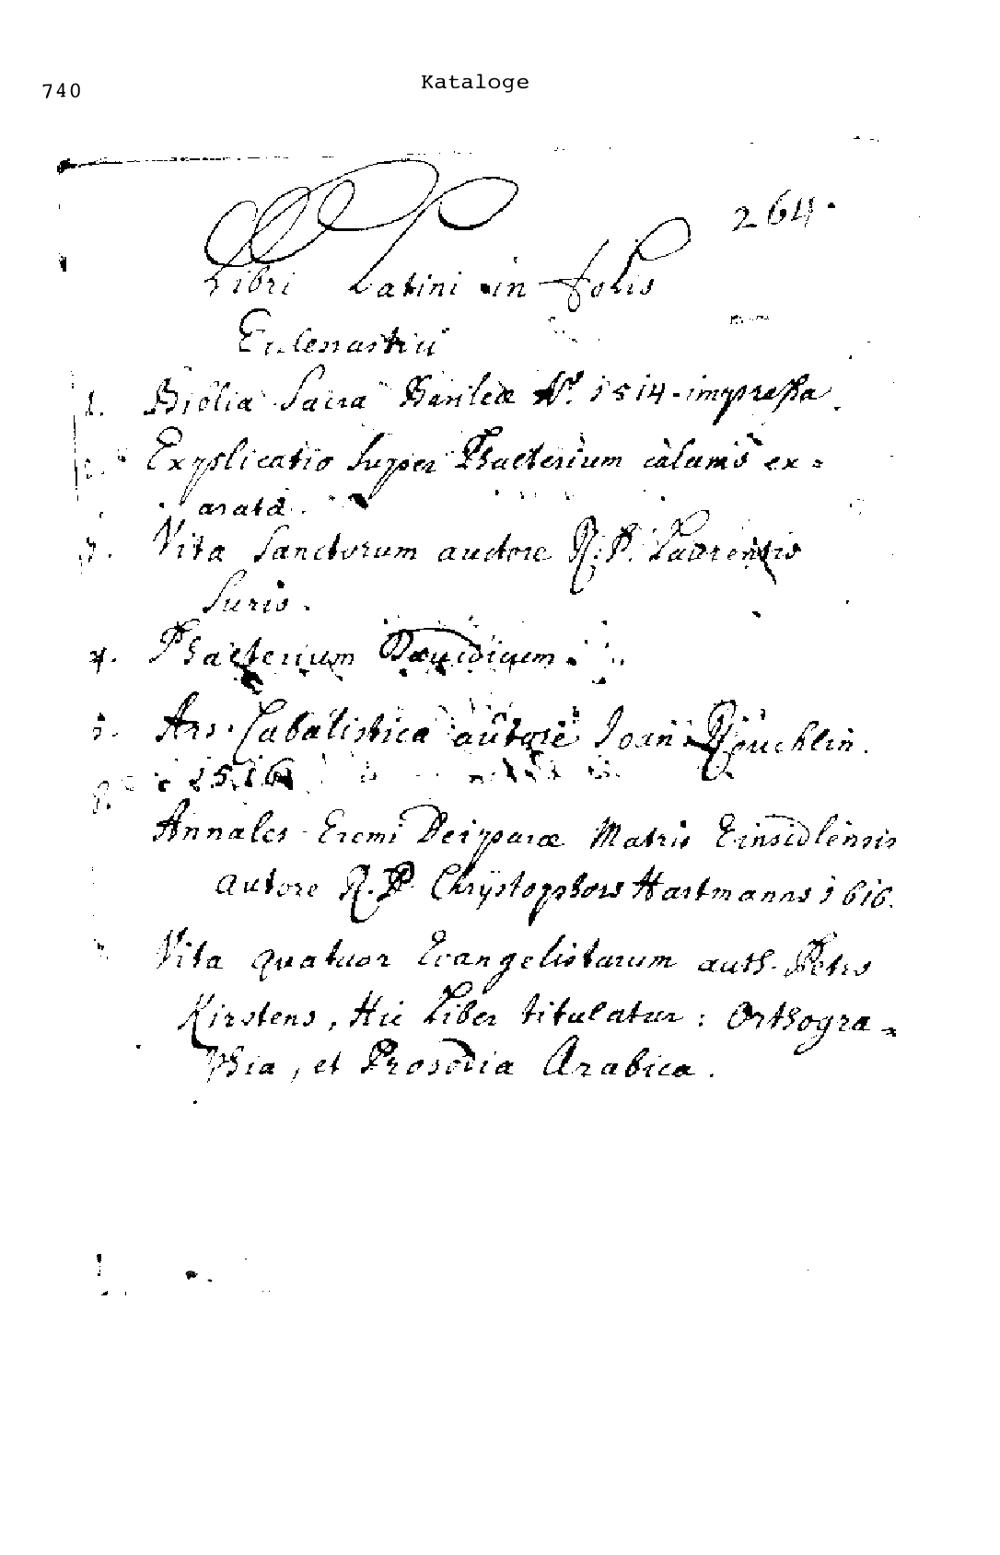 740
Kataloge
264.
Libri Latini in Folio
Eclesiastici
1. Biblia Sacra Basileæ Aº. 1514. impressa.
2. Explicatio super Psalterium calamo ex=
arata.
3. Vita Sanctorum auctore R. P. Laurentio
Surio.
4. Psalterium Davidicum.
5. Ars Cabalistica autore Joan: Reuchlin.
1516
6.
Annales Eremi Deiparæ Matris Einsidlensis
autore R. P. Chrystophoro Hartmanno 1616.
Vita quatuor Evangelistarum auth. Petro
Kirsteno, Hic Liber titulatur: Orthogra=
phia, et Prosodia Arabica.